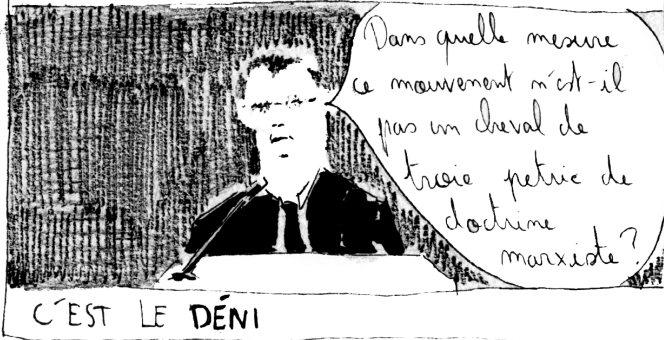 Dans quelle mesure
ce mouvement n'est-il
pas un cheval de
troie petric de
doctrine
marxiste?
C'EST LE DÉNI